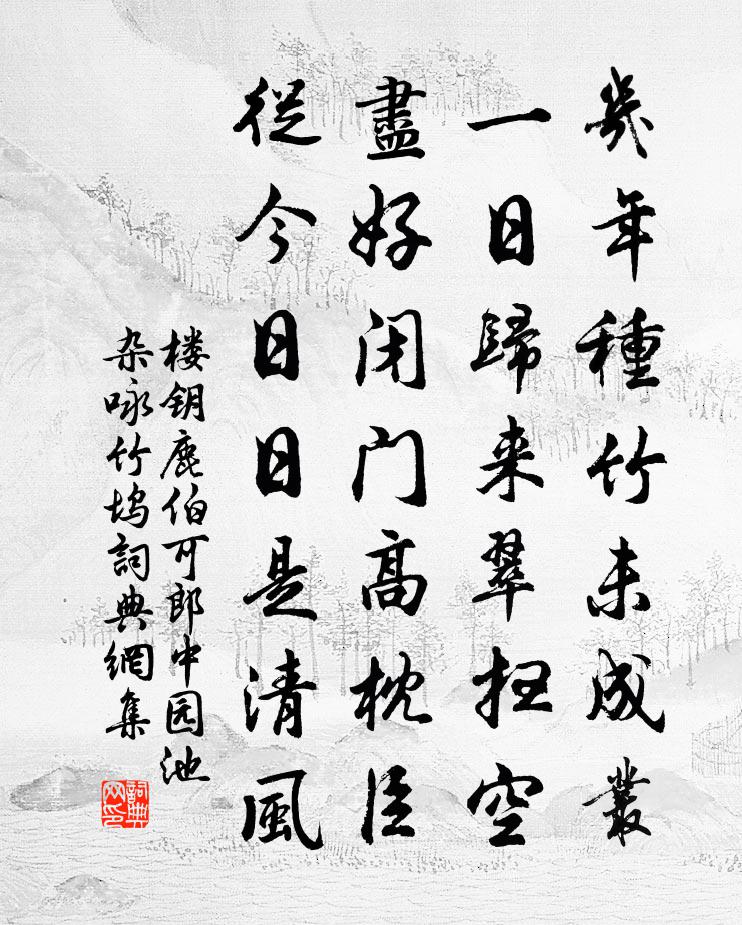 幾年種竹未成叢
一日歸来翠拄空
盡好闭门高枕臥
從今日日是清風
楼钥鹿伯可郎中园池
杂咏竹坞詞典網集
詞典
网印